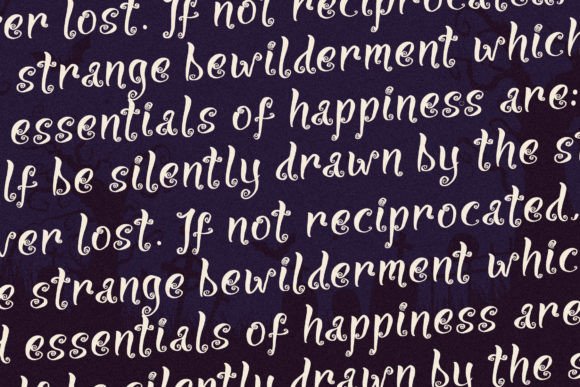 ver lost. If not reciprocated,
strange bewilderment which
essentials of happiness are:
lf be silently drawn by the s
ver lost. If not reciprocated,
e strange bewilderment whic
d essentials of happiness are
be silently drawn by the s